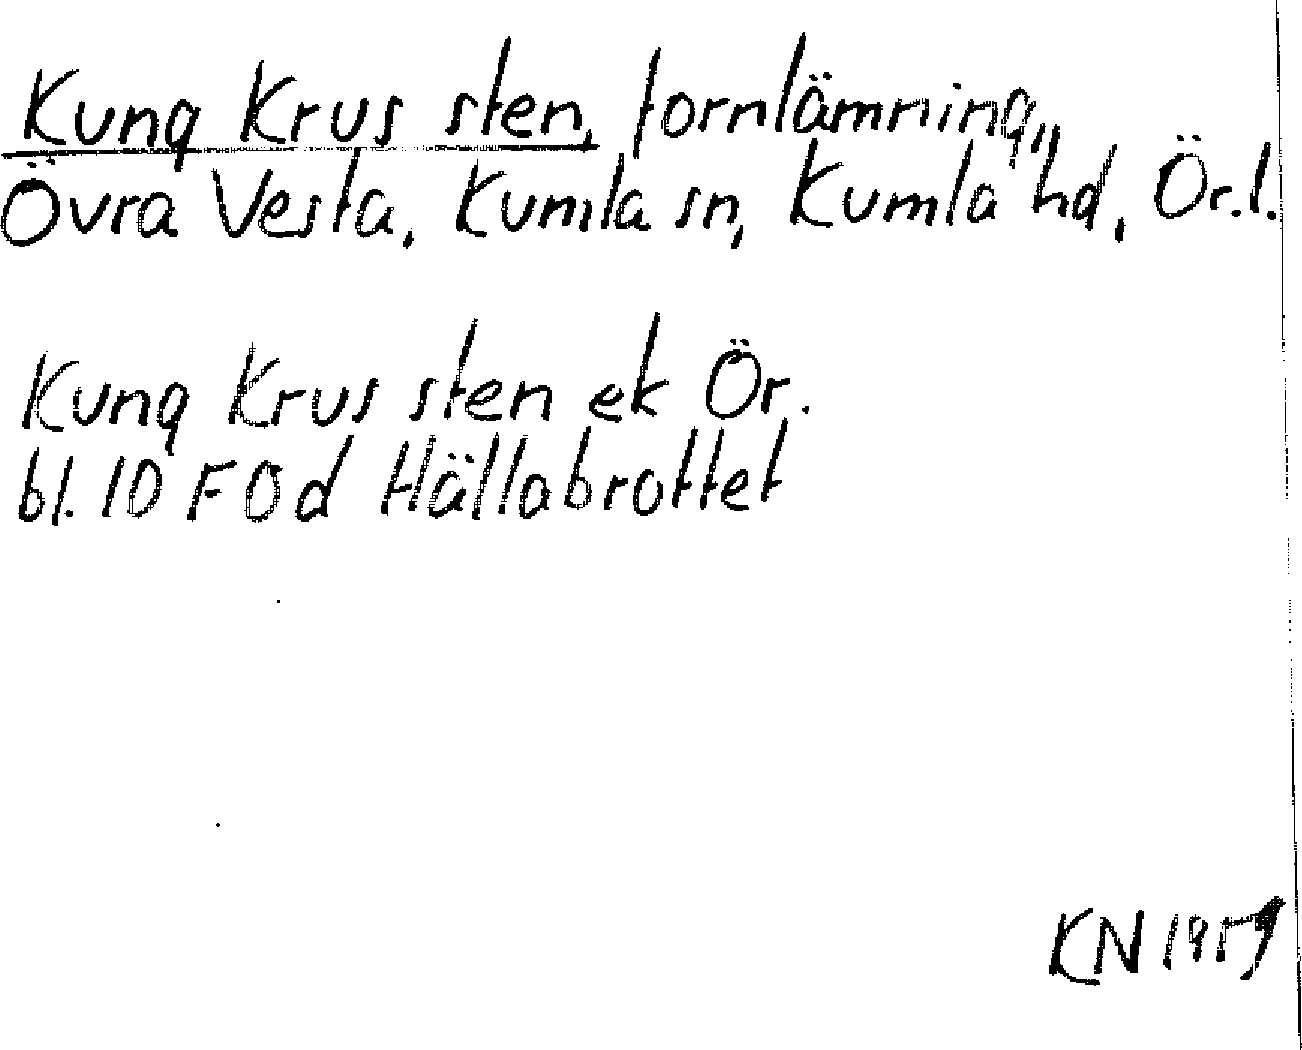 Kung Krus sten, fornlämning,
Övra Vesta, Kumla sn, Kumla hd, Ör.l.
Kung Krus sten ek Ör.
bl. 10 F 0 d Hällabrottet
KN